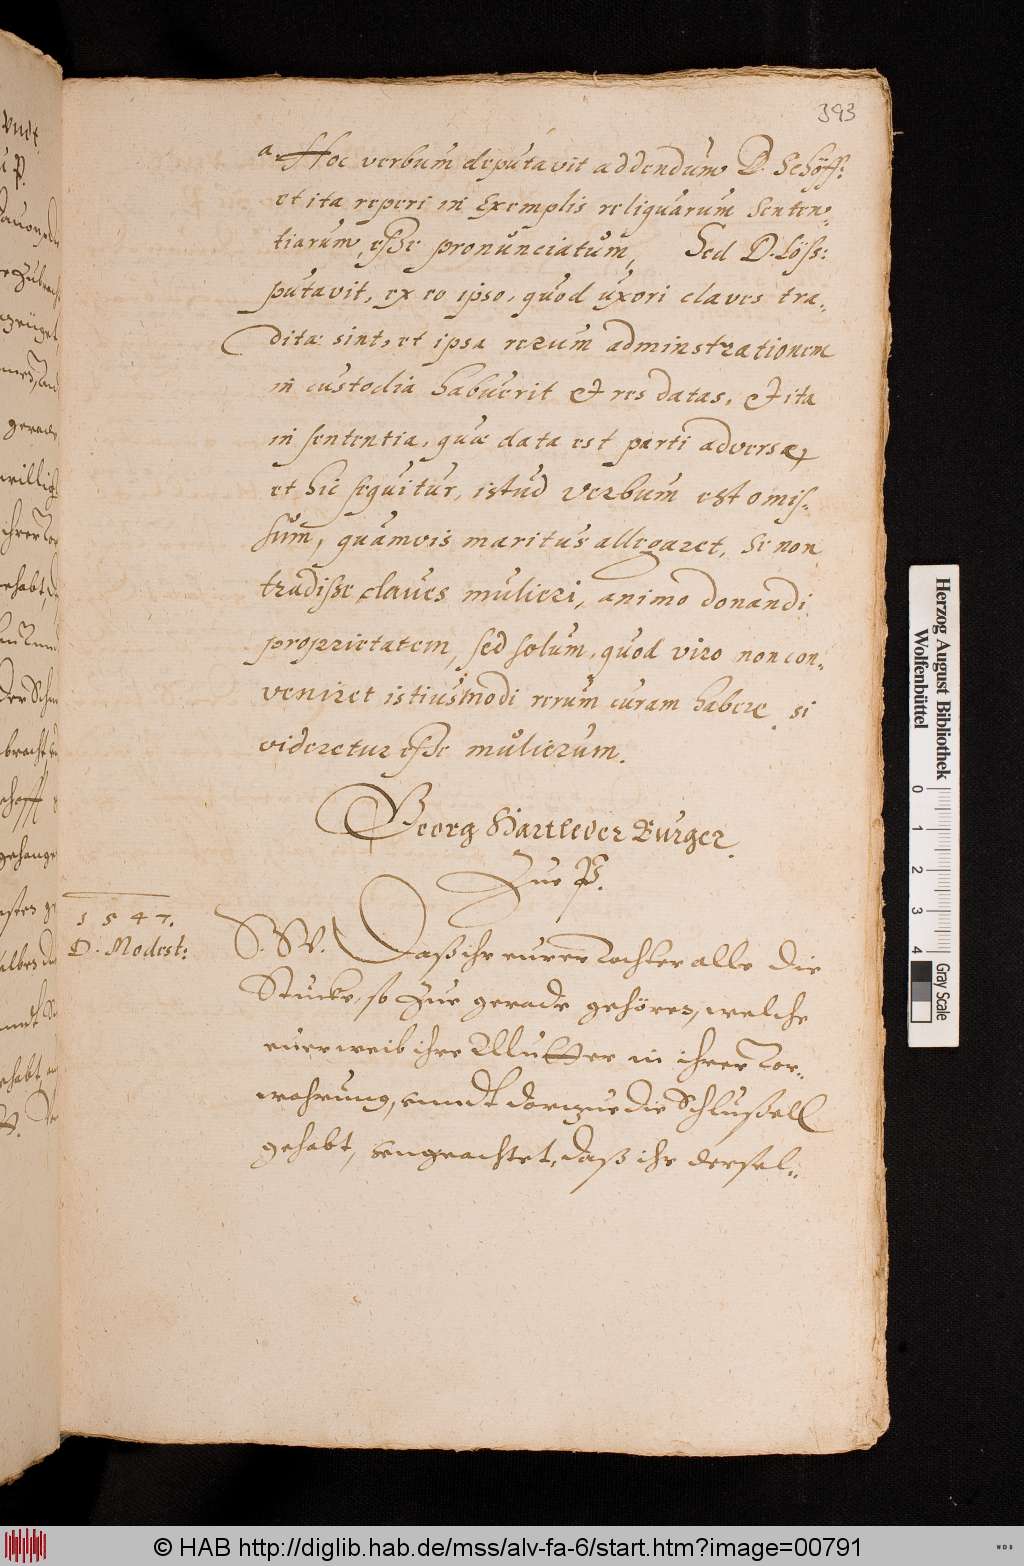 393
a. Hoc verbum deputavit addendum D. Schöff:
et ita reperi in Exemplis reliquarum senten-
tiarum, esse pronunciatum, Sed D. Löss:
putavit, ex eo ipso, quod uxori claves tra-
ditæ sint, et ipsa rerum adminstrationem
in custodia habuerit et res datas, et ita
in sententia, quæ data est parti adversæ,
et hic sequitur, istud verbum est omis-
sum, quamvis maritus allegaret, se non
tradisse claves mulieri, animo donandi
proprietatem, sed solum, quod viro non con-
veniret istiusmodi rerum curam habere, si
videretur esse mulierum.
Georg Hartleder Burger
Zue P.
1547.
D. Modest:
S. W. Daß ihr eurer Tochter alle die
Stucke, so Zue gerade gehören, welche
euer weib ihre Mutter in ihrer Vor-
wahrung, unndt darzue die Schlußell
gehabt, ungeachtet, daß ihr dersel-
Herzog August Bibliothek
Wolfenbüttel
0 1 2 3 4
Gray Scale
© HAB http://diglib.hab.de/mss/alv-fa-6/start.htm?image=00791